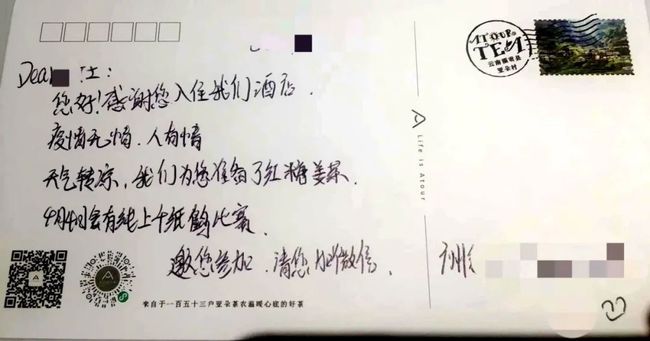 ATOUR
TEA
云南
亚朵村
Dear 士:
您好!感谢您入住我们酒店.
疫情无情.人有情
天气转凉,我们为您准备了红糖姜茶.
4月4日会有线上千纸鹤比赛.
邀您参加.请您加微信.
A Life is Atour
来自于一百五十三户亚朵茶农温暖心底的好茶